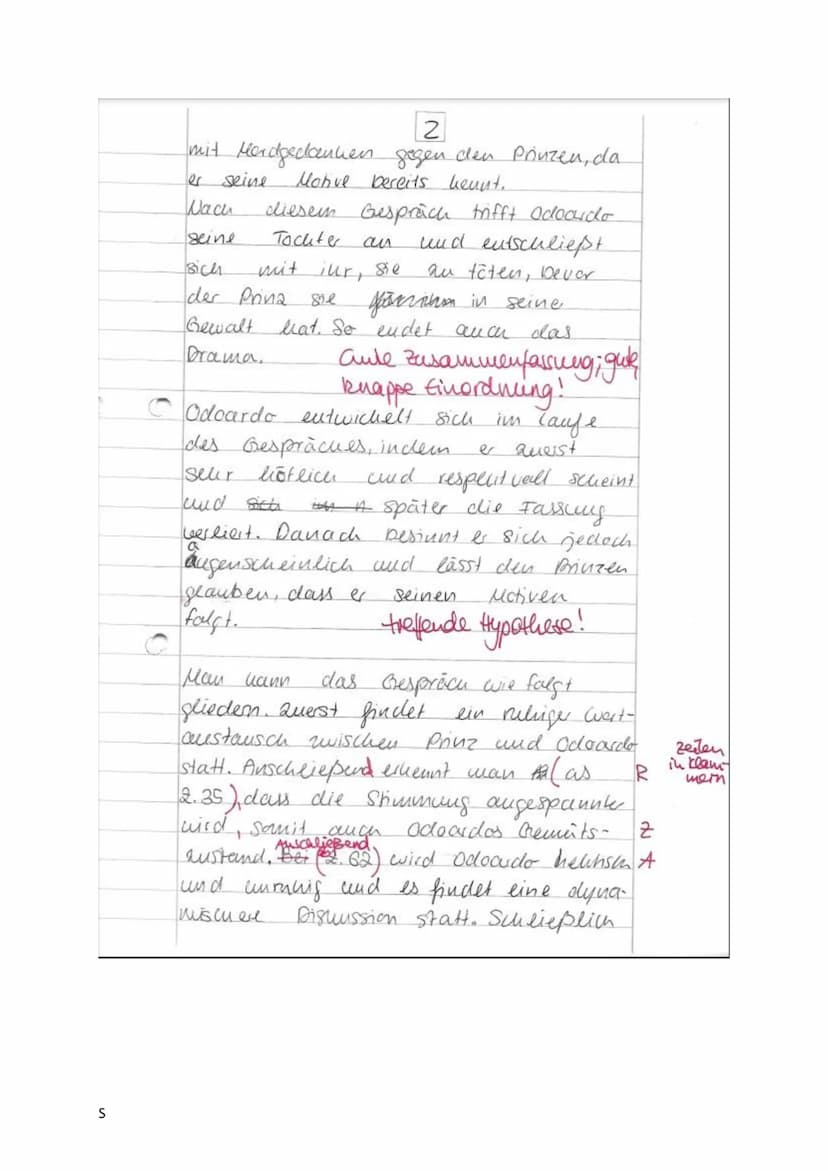 2
mit Mordgedanken gegen den Prinzen, da
er seine Motive bereits kennt.
Nach diesem Gespräch trifft Odoardo
seine Tochter an und entschließt
sich mit ihr, sie zu töten, bevor
der Prinz sie in seine
Gewalt hat. So endet auch das
Drama. Gute Zusammenfassung; gute,
knappe Einordnung!
Odoardo entwickelt sich im Laufe
des Gespräches, indem er zuerst
sehr höflich und respektvoll scheint
und sich später die Fassung
verliert. Danach besinnt er sich jedoch
augenscheinlich und lässt den Prinzen
glauben, dass er seinen Motiven
folgt. treffende Hypothese!
Man kann das Gespräch wie folgt
gliedern. Zuerst findet ein ruhiger Wort-
austausch zwischen Prinz und Odoardo
statt. Anschließend erkennt man (as R Zeilen in Klammern
Z.35), dass die Stimmung angespannter
wird, somit auch Odoardos Gemüts- Z
Anschließend
zustand. Bei (Z. 62) wird Odoardo hektisch A
und unruhig und es findet eine dyna-
mischere Diskussion statt. Schließlich
S